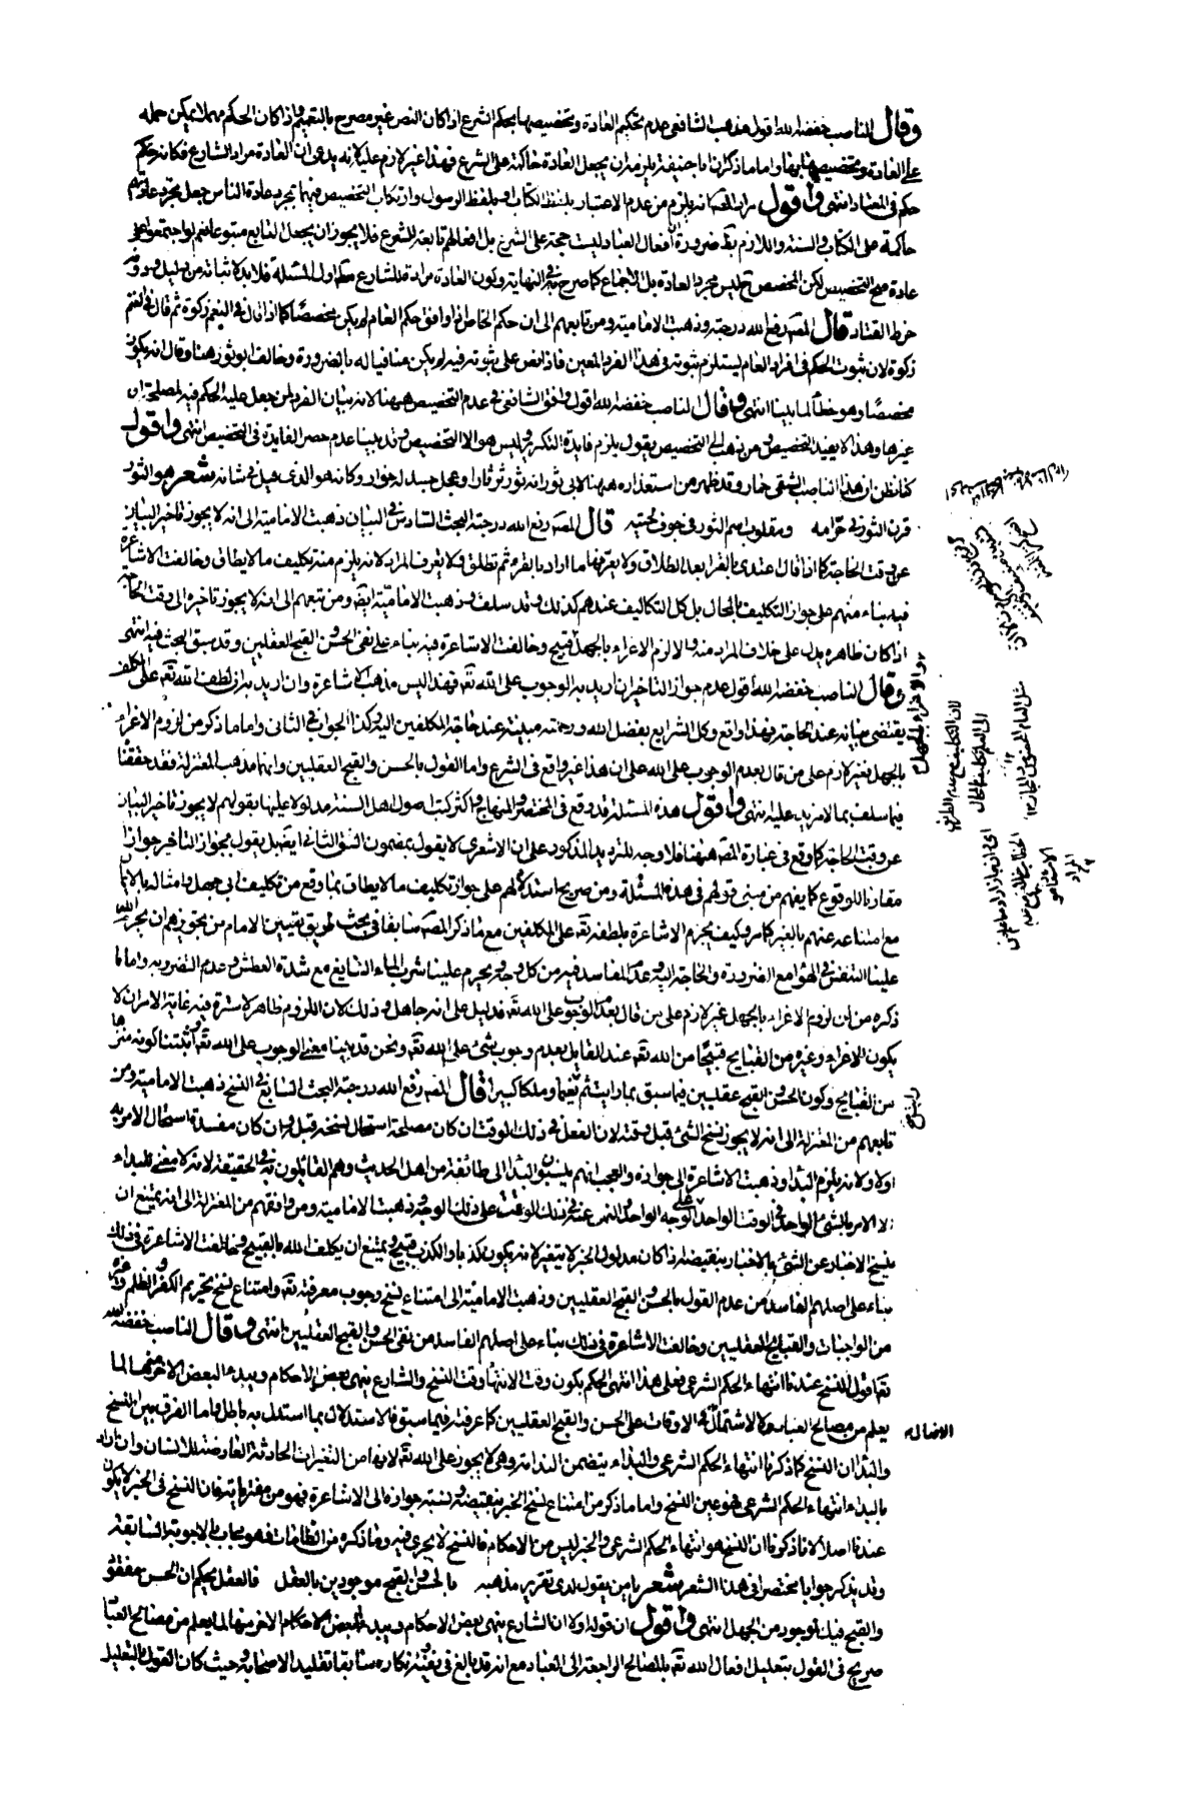 وقال الناصب خفضه الله اقول مذهب الشافعي عدم تحكيم العادة وتخصيصها بحكم الشرع اذا كان النص غير مصرح بالتعميم واذا كان الحكم مهملا يمكن حمله
على العادة وتخصيصه بها واما ما ذكر ان ابا حنيفة يلزمه ان يجعل العادة حاكمة على الشرع فهذا غير لازم عليه لانه يدعي ان العادة مراد الشارع فكانه حكم
حكم في المعتاد انتهى واقول مراد المصـ انه يلزم من عدم الاعتبار بلفظ الكتاب او بلفظ الرسول وارتكاب التخصيص فيهما بمجرد عادة الناس جعل مجرد عادتهم
حاكمة على الكتاب والسنة واللازم بط ضرورة ان أفعال العباد ليست حجة على الشرع بل افعالهم تابعة للشرع فلا يجوز ان يجعل التابع متبوعا نعم لو اجتمعوا على
عادة صح التخصيص لكن المخصص ح ليس مجرد العادة بل الاجماع كما صرح به في النهاية وكون العادة مرادة للشارع اول المسئلة فلا بد لاثباته من دليل ودونه
خرط القتاد قال المصـ رفع الله درجته وذهبت الامامية ومن تابعهم الى ان حكم الخاص اذا وافق حكم العام لم يكن مخصصا كما اذا قال في النعم زكوة ثم قال في الغنم
زكوة لان ثبوت الحكم في افراد العام يستلزم ثبوته في هذا الفرد المعين فاذا نص على ثبوته فيه لم يكن منافيا له بالضرورة وخالف ابو ثور هنا وقال انه يكون
مخصصا وهو خطأ لما بينا انتهى وقال الناصب خفضه الله اقول وافق الشافعي في عدم التخصيص ههنا لانه بيان الفرد لمن جعل عليه الحكم فيه لمصلحة او
غيرها وهذا لا يفيد التخصيص ومن ذهب الى التخصيص يقول يلزم فايدة التكرر وليس هو الا التخصيص وقد بينا عدم حصر الفايدة في التخصيص انتهى واقول
كنا نظن ان هذا الناصب الشقي حمار وقد ظهر من استعذاره ههنا لابي ثور انه ثور ثرثار او عجل جسد له خوار وكانه هو الذي قيل في شانه شعر هو الثور
قرن الثور في حرامه ومقلوب اسم الثور في جوف لحيته قال المصـ رفع الله درجته البحث السادس في البيان ذهبت الامامية الى انه لا يجوز تاخير البيان
عن وقت الحاجة كما اذا قال عتدي بالقرء بعد الطلاق ولا يعرفها ما اراد بالقرء ثم تطلق ولا يعرف المراد لانه يلزم منه تكليف ما لا يطاق وخالفت الاشاعرة
فيه بناء منهم على جواز التكليف بالمحال بل كل التكاليف عندهم كذلك وقد سلف وذهبت الامامية ايضا ومن تبعهم الى انه لا يجوز تاخيره الى وقت الحاجة
اذا كان ظاهره يدل على خلاف المراد منه والا لزم الاغراء بالجهل وهو قبيح وخالفت الاشاعرة فيه بناء على نفى الحسن والقبح العقليين وقد سبق البحث فيه انتهى
وقال الناصب خفضه الله أقول عدم جواز التاخير ان اريد به الوجوب على الله تعـ فهذا ليس مذهب الاشاعرة وان اريد به ان لطف الله تعـ على المكلف
يقتضي بيانه عند الحاجة فهذا واقع وكل الشرايع بفضل الله ورحمته مبينة عند حاجة المكلفين اليه وكذا الجواب في الثانى واما ما ذكر من لزوم الاغراء
بالجهل فغير لازم على من قال بعدم الوجوب على الله على ان هذا غير واقع في الشرع واما القول بالحسن والقبح العقليين وانهما مذهب المعتزلة فقد حققنا
فيما سلف بما لا مزيد عليه انتهى واقول هذه المسئلة قد وقع في المختصر والمنهاج واكثر كتب اصول اهل السنة مدلولا عليها بقولهم لا يجوز تاخير البيان
عن وقت الحاجة كما وقع في عبارة المصـ ههنا فلا وجه للترديد المذكور على ان الاشعري لا يقول بمضمون الشق الثاني ايضا بل يقول بجواز التاخير جوازا
مقارنا للوقوع كما يفهم من مبنى قولهم في هذه المسئلة ومن صريح استدلالهم على جواز تكليف ما لا يطاق بما وقع من تكليف ابي جهل وامثاله بالايمان
مع امتناعه عنهم بالغير كما مر وكيف يجزم الاشاعرة بلطفه تعـ على المكلفين مع ما ذكر المصـ سابقا في بحث طريق تعيين الامام من تجويزهم ان يحرم الله
علينا التنفس في الهواء مع الضرورة والحاجة اليه وعدم المفاسد فيه من كل وجه ويحرم علينا شرب الماء السايغ مع شدة العطش وعدم التضرر به واما ما
ذكره من ان لزوم الاغراء بالجهل غير لازم على من قال بعدم الوجوب على الله تعـ فدليل على انه جاهل وذلك لان اللزوم ظاهر لا سترة فيه غاية الامر ان لا
يكون الاغراء وغيره من القبايح قبيحا من الله تعـ عند القايل بعدم وجوب شئ على الله تعـ ونحن قد بينا معنى الوجوب على الله تعـ واثبتنا كونه منزها
من القبايح وكون الحسن والقبح عقليين فيما سبق بما رايت ثم نعيما وملكا كبيرا قال المصـ رفع الله درجته البحث السابع في النسخ ذهبت الامامية ومن
تابعهم من المعتزلة الى انه لا يجوز نسخ الشئ قبل وقته لان الفعل في ذلك الوقت ان كان مصلحة استحال نسخه قبل وان كان مفسدة استحال الامر به
اولا ولانه يلزم البدا وذهبت الاشاعرة الى جوازه والعجب انهم ينسبون البدا الى طائفة من اهل الحديث وهم القائلون به في الحقيقة لانه لا معنى للبداء
الا الامر بالشئ الواحد في الوقت الواحد على الوجه الواحد والنهى عنه في ذلك الوقت على ذلك الوجه وذهبت الامامية ومن وافقهم من المعتزلة الى انه يمتنع ان
ينسخ الاخبار عن الشئ بالاخبار بنقيضه اذا كان مدلول الخبر لا يتغير لانه يكون كذبا والكذب قبيح ويمتنع ان يكلف الله بالقبيح وخالفت الاشاعرة في ذلك
بناء على اصلهم الفاسد من عدم القول بالحسن والقبح العقليين وذهبت الامامية الى امتناع نسخ وجوب معرفته تعـ وامتناع نسخ تحريم الكفر والظلم وغيره
من الواجبات والقبايح العقليين وخالفت الاشاعرة في ذلك بناء على اصلهم الفاسد من نفى الحسن والقبح العقليين انتهى وقال الناصب خفضه الله
تعـ اقول النسخ عندنا انتهاء الحكم الشرعى فعلى هذا انتهى الحكم يكون وقت الانتهاء وقت النسخ والشارع ينهى بعض الاحكام ويبدء البعض الاخر منها لما
يعلم من مصالح العباد ولا لاشتمال الاوقات على الحسن والقبح العقليين كما عرفت فيما سبق فالاستدلال بما استدل به باطل واما الفرق بين النسخ
والبدا ان النسخ كما ذكرنا انتهاء الحكم الشرعى والبداء يتضمن الندامة وهى لا يجوز على الله تعـ لانها من التغيرات الحادثة العارضة للانسان وان اراد
بالبداء انتهاء الحكم الشرعى فهو عين النسخ واما ما ذكر من امتناع نسخ الخبر بنقيضه ونسبة جوازه الى الاشاعرة فهو من مفترياته فان النسخ في الخبر لا يكون
عندنا اصلا لانا ذكرنا ان النسخ هو انتهاء الحكم الشرعى والخبر ليس من الاحكام فالنسخ لا يجري فيه وما ذكره من الطامات فهو مجاب بالاجوبة السابقة
وقد يذكر جوابا مختصرا في هذا الشعر شعر يا من يقول لدى تقرير مذهبه بالحسن والقبح موجودين بالعقل فالعقل يحكم ان الحسن مفقود
والقبح فيك لموجود من الجهل انتهى واقول ان قوله اولا ان الشارع ينهى بعض الاحكام ويبدء لبعض الاحكام الاخر منها لما يعلم من مصالح العباد
صريح في القول بتعليل افعال الله تعـ بالمصالح الراجعة الى العباد مع انه قد بالغ في نفيه وانكاره سابقا تقليدا لاصحابه وحيث كان القول بالتعليل
والاغراء بالجهل
لان التكليف مع عدم الطريق
الى العلم تكليف بالمحال